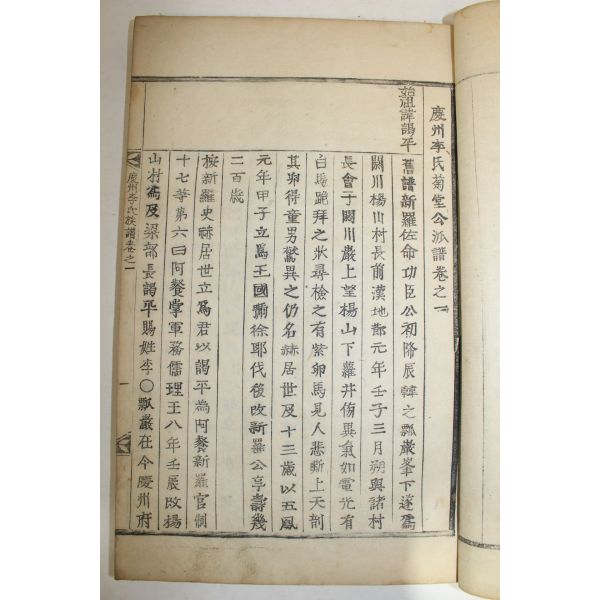 慶州李氏菊堂公派譜卷之一
始祖諱謁平
舊譜新羅佐命功臣公初降辰韓之瓢巖峯下遂爲
閼川楊山村長前漢地節元年壬子三月朔與諸村
長會于閼川巖上望楊山下蘿井傍異氣如電光有
白馬跪拜之狀尋檢之有紫卵馬見人悲嘶上天剖
其卵得童男驚異之仍名赫居世及十三歲以五鳳
元年甲子立爲王國號徐耶伐後改新羅公享壽幾
二百歲
按新羅史赫居世立爲君以謁平為阿餐新羅官制
十七等第六曰阿餐掌軍務儒理王八年壬辰改楊
山村爲及梁部長謁平賜姓李〇瓢巖在今慶州府
慶州李氏族譜卷之一
一